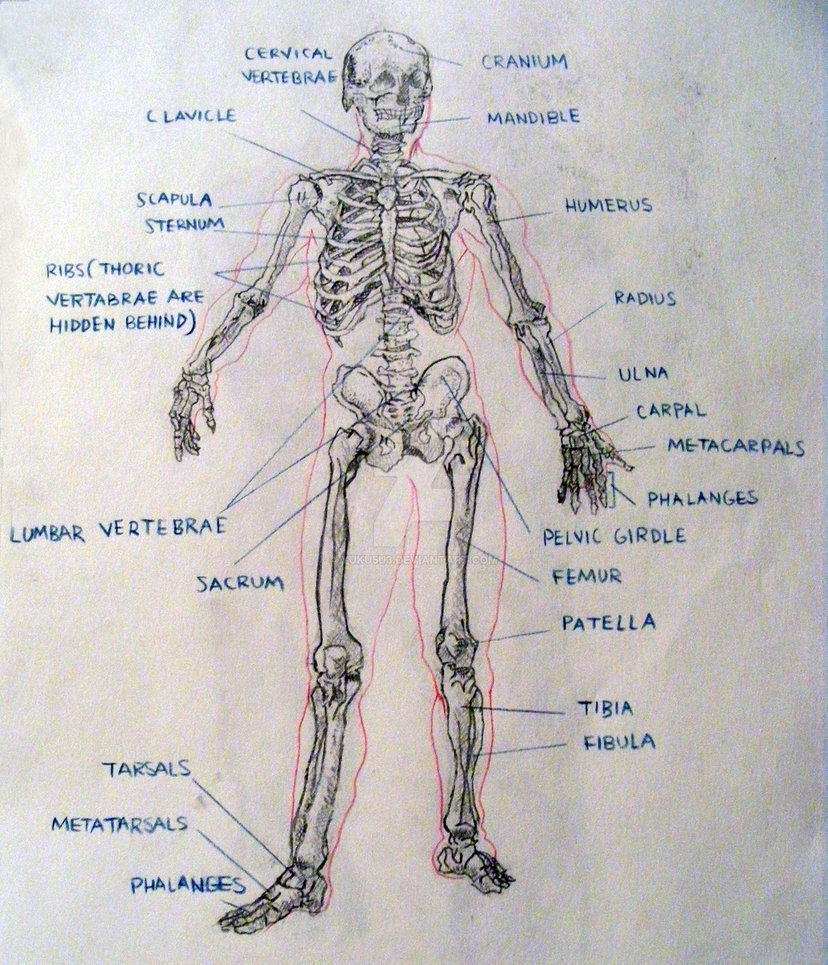 CERVICAL
VERTEBRAE
CRANIUM
CLAVICLE
MANDIBLE
SCAPULA
STERNUM
HUMERUS
RIBS (THORIC
VERTABRAE ARE
HIDDEN BEHIND)
RADIUS
ULNA
CARPAL
METACARPALS
PHALANGES
LUMBAR VERTEBRAE
PELVIC GIRDLE
SACRUM
FEMUR
PATELLA
TIBIA
FIBULA
TARSALS
METATARSALS
PHALANGES